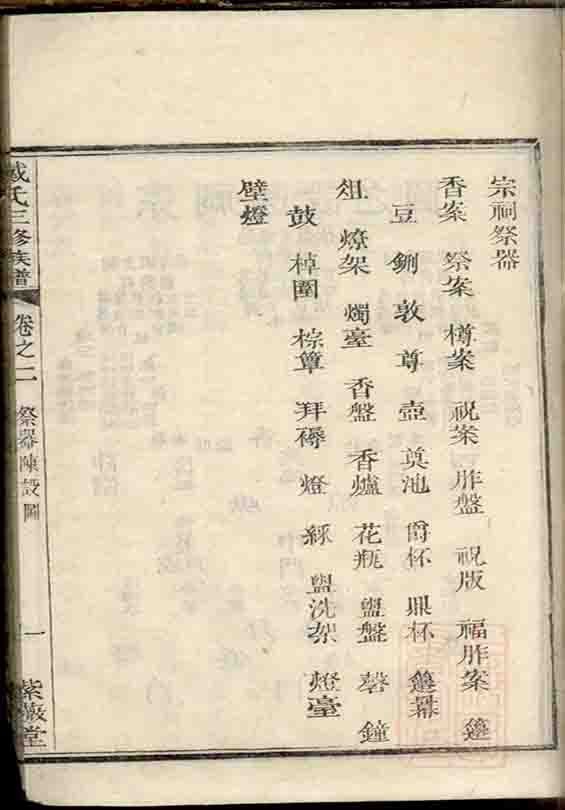 宗祠祭器
香案 祭案 樽案 祝案 胙盤 祝版 福胙案 籩
豆 鉶 敦 尊 壺 奠池 爵杯 鼎杯 籩冪
俎 燎架 燭臺 香盤 香爐 花瓶 盥盤 磬 鐘
鼓 棹圍 棕簟 拜褥 燈 綵 盥洗架 燈臺
壁燈
戴氏三修族譜 卷之二 祭器陳設圖 一 紫巖堂